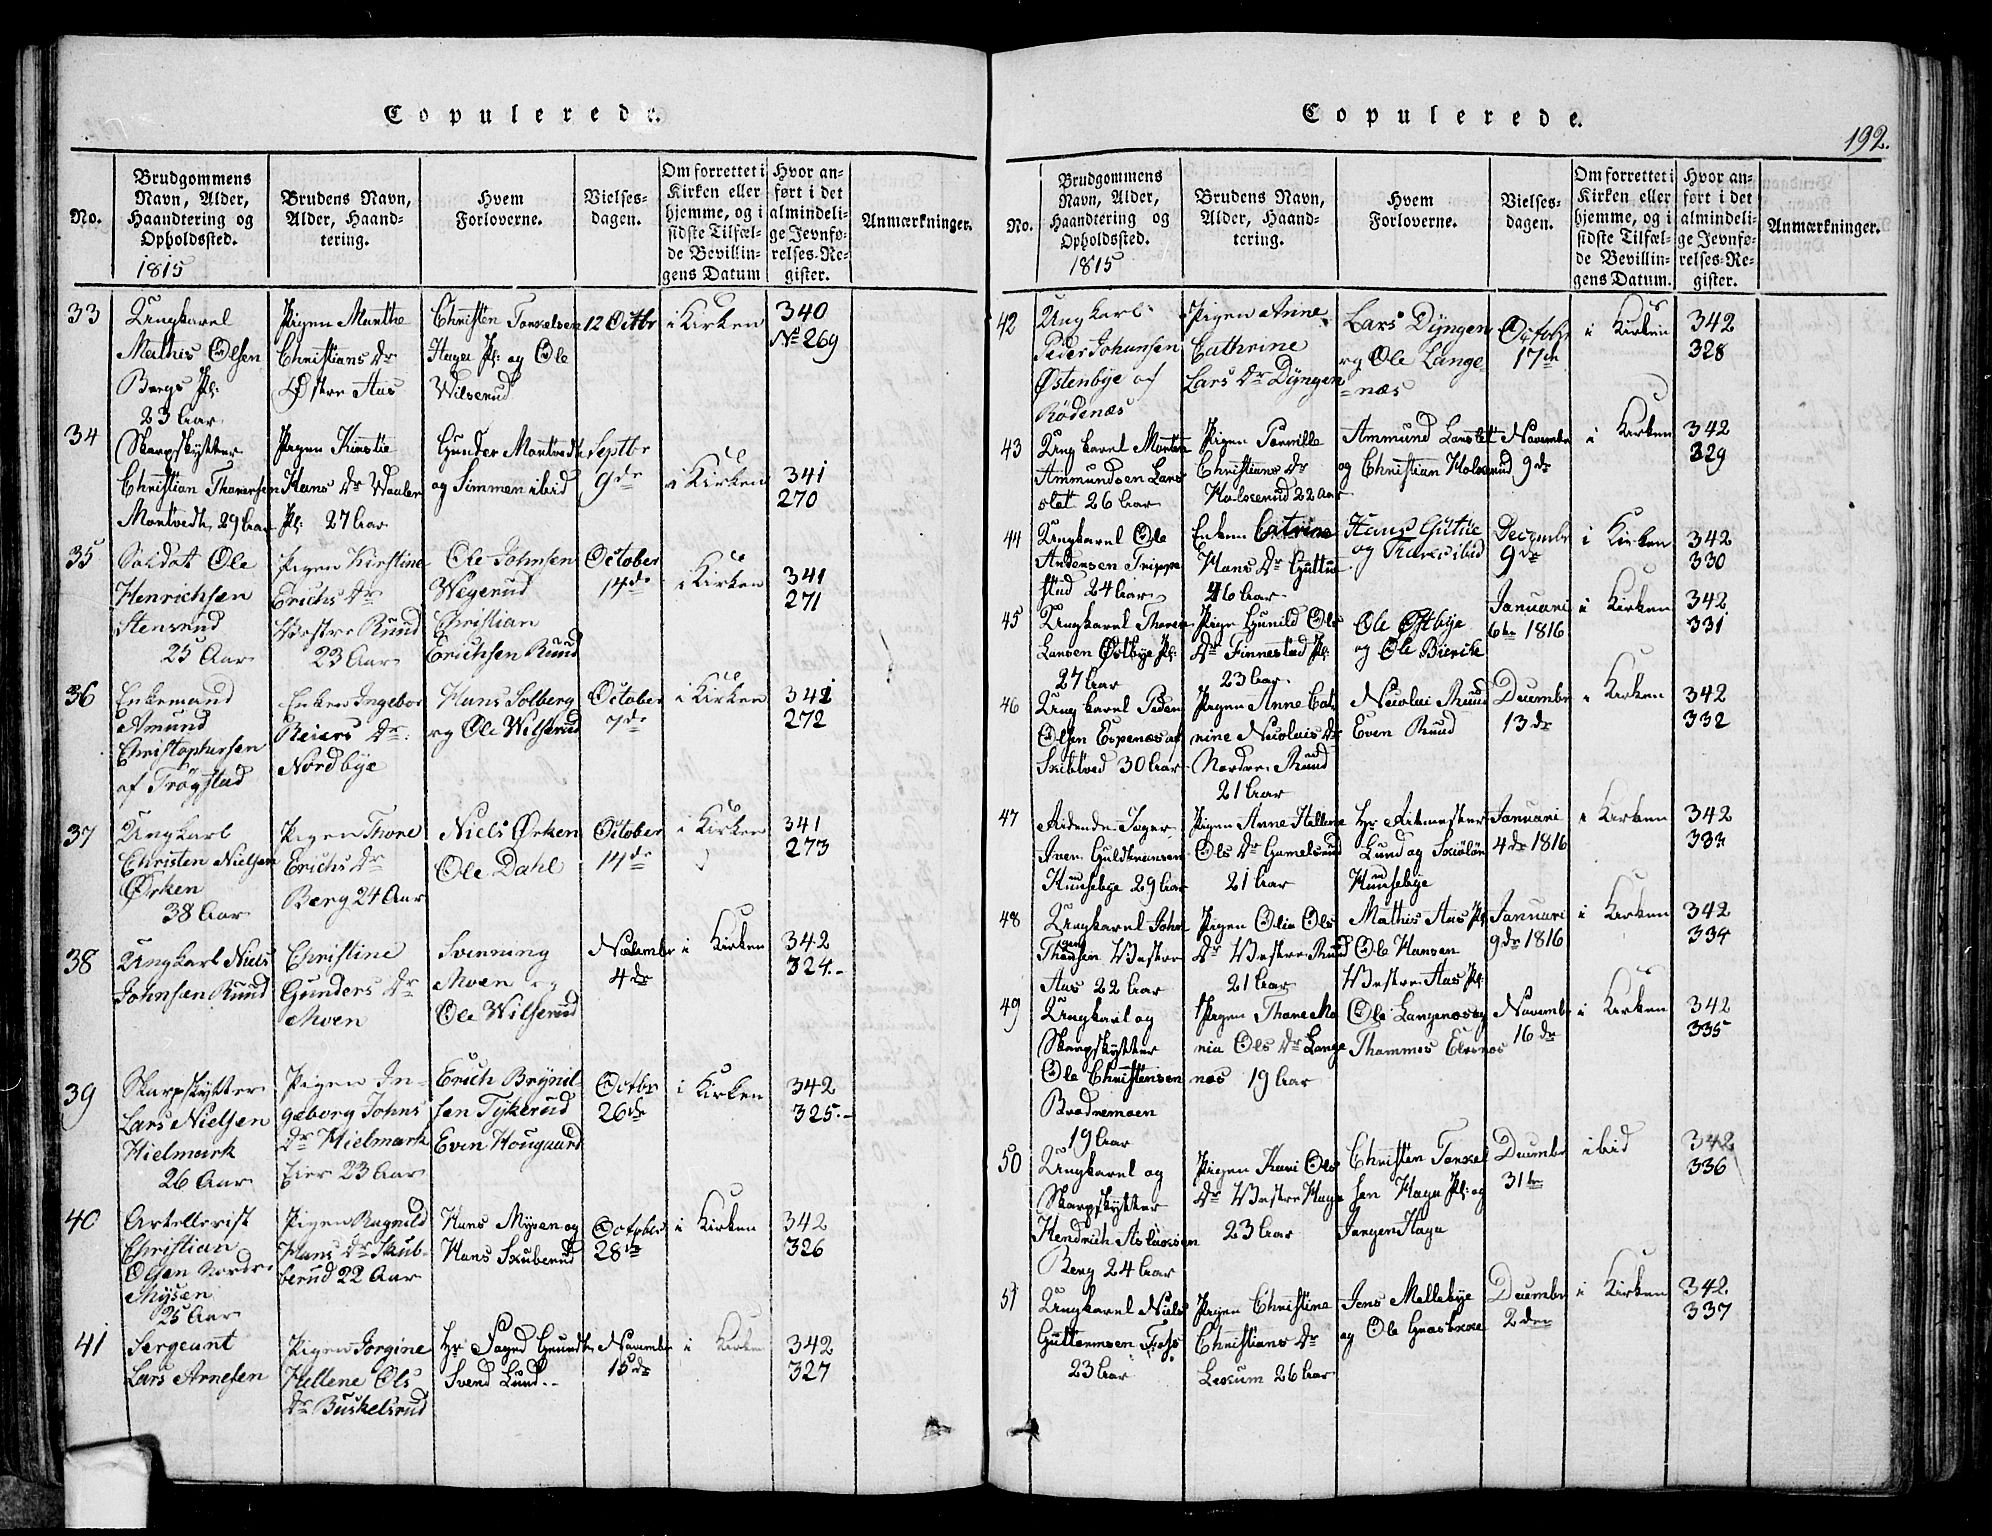 Copulerede.
No.
Brudgommens
Navn, Alder,
Haandtering og
Opholdssted.
1815
Brudens Navn,
Alder, Haand-
tering.
Hvem
Forloverne.
Vielses-
dagen.
Om forrettet i
Kirken eller
hjemme, og i
sidste Tilfæl-
de Bevillin-
gens Datum
Hvor an-
ført i det
almindeli-
ge Jevnfø-
relses-Re-
gister.
Anmærkninger.
33
Ungkarl
Mathis Olsen
Bergs Pl:
23 Aar
Pigen Marthe
Christians Dr
Østre Aas
Christen
Haga Pl: og Ole
Wilserud
12 Octbr
i Kirken
340
No 269
34
Skarpskytter
Christian
Montvedt 29 Aar
Pigen Kirstie
Hans Dr
Pl: 27 Aar
Gunder Montvedt
og Simmen ibid
Septbr
9de
i Kirken
341
270
35
Soldat Ole
Henrichsen
Stensrud
25 Aar
Pigen Kirstine
Erichs Dr
Westre Ruud
23 Aar
Ole Johnsen
Wegerud
Christian
Erichsen Ruud
October
14de
i Kirken
341
271
36
Enkemand
Amund
Christophersen
af Trøgstad
Enken Ingebor
Reiers Dr:
Nordbye
Hans Solberg
og Ole Wilserud
October
7de
i Kirken
341
272
37
Ungkarl
Christen Nielsen
Ørken
38 Aar
Pigen Thore
Erichs Dr
Berg 24 Aar
Niels Ørken
Ole Dahl
October
14de
i Kirken
341
273
38
Ungkarl Niels
Johnsen Ruud
Christine
Gunders Dr
Moen
Svenning
Moen og
Ole Wilserud
Novembr
4de
i Kirken
342
324.-
39
Skarpskytter
Lars Nielsen
Hielmark
26 Aar
Pigen In-
geborg Johns
Dr Hielmark
Eier 23 Aar
Erich Brynil-
sen Tykerud
Even Hougaard
Octbr
26de
i Kirken
342
325.-
40
Artellerist
Christian
Olsen Nordre
Mysen
25 Aar
Pigen Ragnild
Hans Dr Skub-
berud 22 Aar
Hans Mysen og
Hans Skuberud
October
28de
i Kirken
342
326
41
Sergeant
Lars Arnesen
Pigen Jorgine
Hellene Ols
Dr Buskelsrud
Hr Foged Grundt
Svend Lund.
Novembr
15de
i Kirken
342
327
Copulerede.
192.
No.
Brudgommens
Navn, Alder,
Haandtering og
Opholdssted.
1815
Brudens Navn,
Alder, Haand-
tering.
Hvem
Forloverne.
Vielses-
dagen.
Om forrettet i
Kirken eller
hjemme, og i
sidste Tilfæl-
de Bevillin-
gens Datum.
Hvor an-
ført i det
almindeli-
ge Jevnfø-
relses-Re-
gister.
Anmærkninger.
42
Ungkarl
Peder Johansen
Østenbye af
Rödenæs
Pigen Anne
Cathrine
Lars Dr Dyngen
Lars Dyngen
og Ole Lange-
=næs
Octobr
17de
i Kirken
342
328
43
Ungkarl Morten
Ammundsen
26 Aar
Pigen
Christians Dr
Holserud 22 Aar
Ammund
og Christian Holserud
Novembr
9de
i Kirken
342
329
44
Ungkarl Ole
Andersen Trippe
stad 24 Aar
Enken Catrine
Hans Dr Guttu
46 Aar
Hans
og ibid
Decembr
9de
i Kirken
342
330
45
Ungkarl Thoren
Larsen Østbye Pl:
27 Aar
Pige Gunild Ols
Dr Finnestad Pl:
23 Aar
Ole Østbye
og Ole
Januari
6te 1816
i Kirken
342
331
46
Ungkarl Peder
Olsen Espenæs af
Skibtved 30 Aar
Pigen Anne Cat
rine Nicolais Dr
Nordre Ruud
21 Aar
Nicolai Ruud
Even Ruud
Decembr
13de
i Kirken
342
332
47
Ridende Jæger
Iver Guldbransen
Huusebye 29 Aar
Pigen Anne Hellene
Ols Dr Gamelsrud
21 Aar
Hr Ritmester
Lund og
Huusebye
Januari
4de 1816
i Kirken
342
333
48
Ungkarl John
Westre
Aas 22 Aar
Pigen Olia Ols
Dr Westre Ruud
21 Aar
Mathis Aas Pl
Ole Hansen
Westre Aas Pl:
Januari
9de 1816
i Kirken
342
334
49
Ungkarl og
Skarpskytter
Ole Christensen
Bradremoen
19 Aar
Pigen Thore Ma
ria Ols Dr Lange
næs 19 Aar
Ole Langenæs og
Thommes
Novemb
16de
i Kirken
342
335
50
Ungkarl og
Skarpskytter
Hendrich Aslaksen
Berg 24 Aar
Pigen Kari Ols
Dr Westre Haga
23 Aar
Christen
sen Haga Pl: og
Jørgen Haga
Decembr
31te
ibid
342
336
51
Ungkarl Niels
Guttormsen Foss
23 Aar
Pigen Christine
Christians Dr
Lekum 26 Aar
Jens Mellebye
og Ole Grasbæk
Decembr
2den
i Kirken
342
337